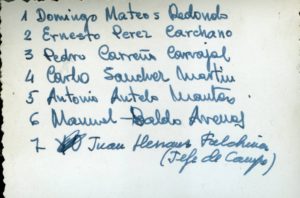 1 Domingo Mateos Redondo
2 Ernesto Perez Carchano
3 Pedro Carreño Carvajal
4 Carlos Sanchez Martin
5 Antonio Antelo
6 Manuel Baldo Arenas
7 Juan
(Jefe de Campo)